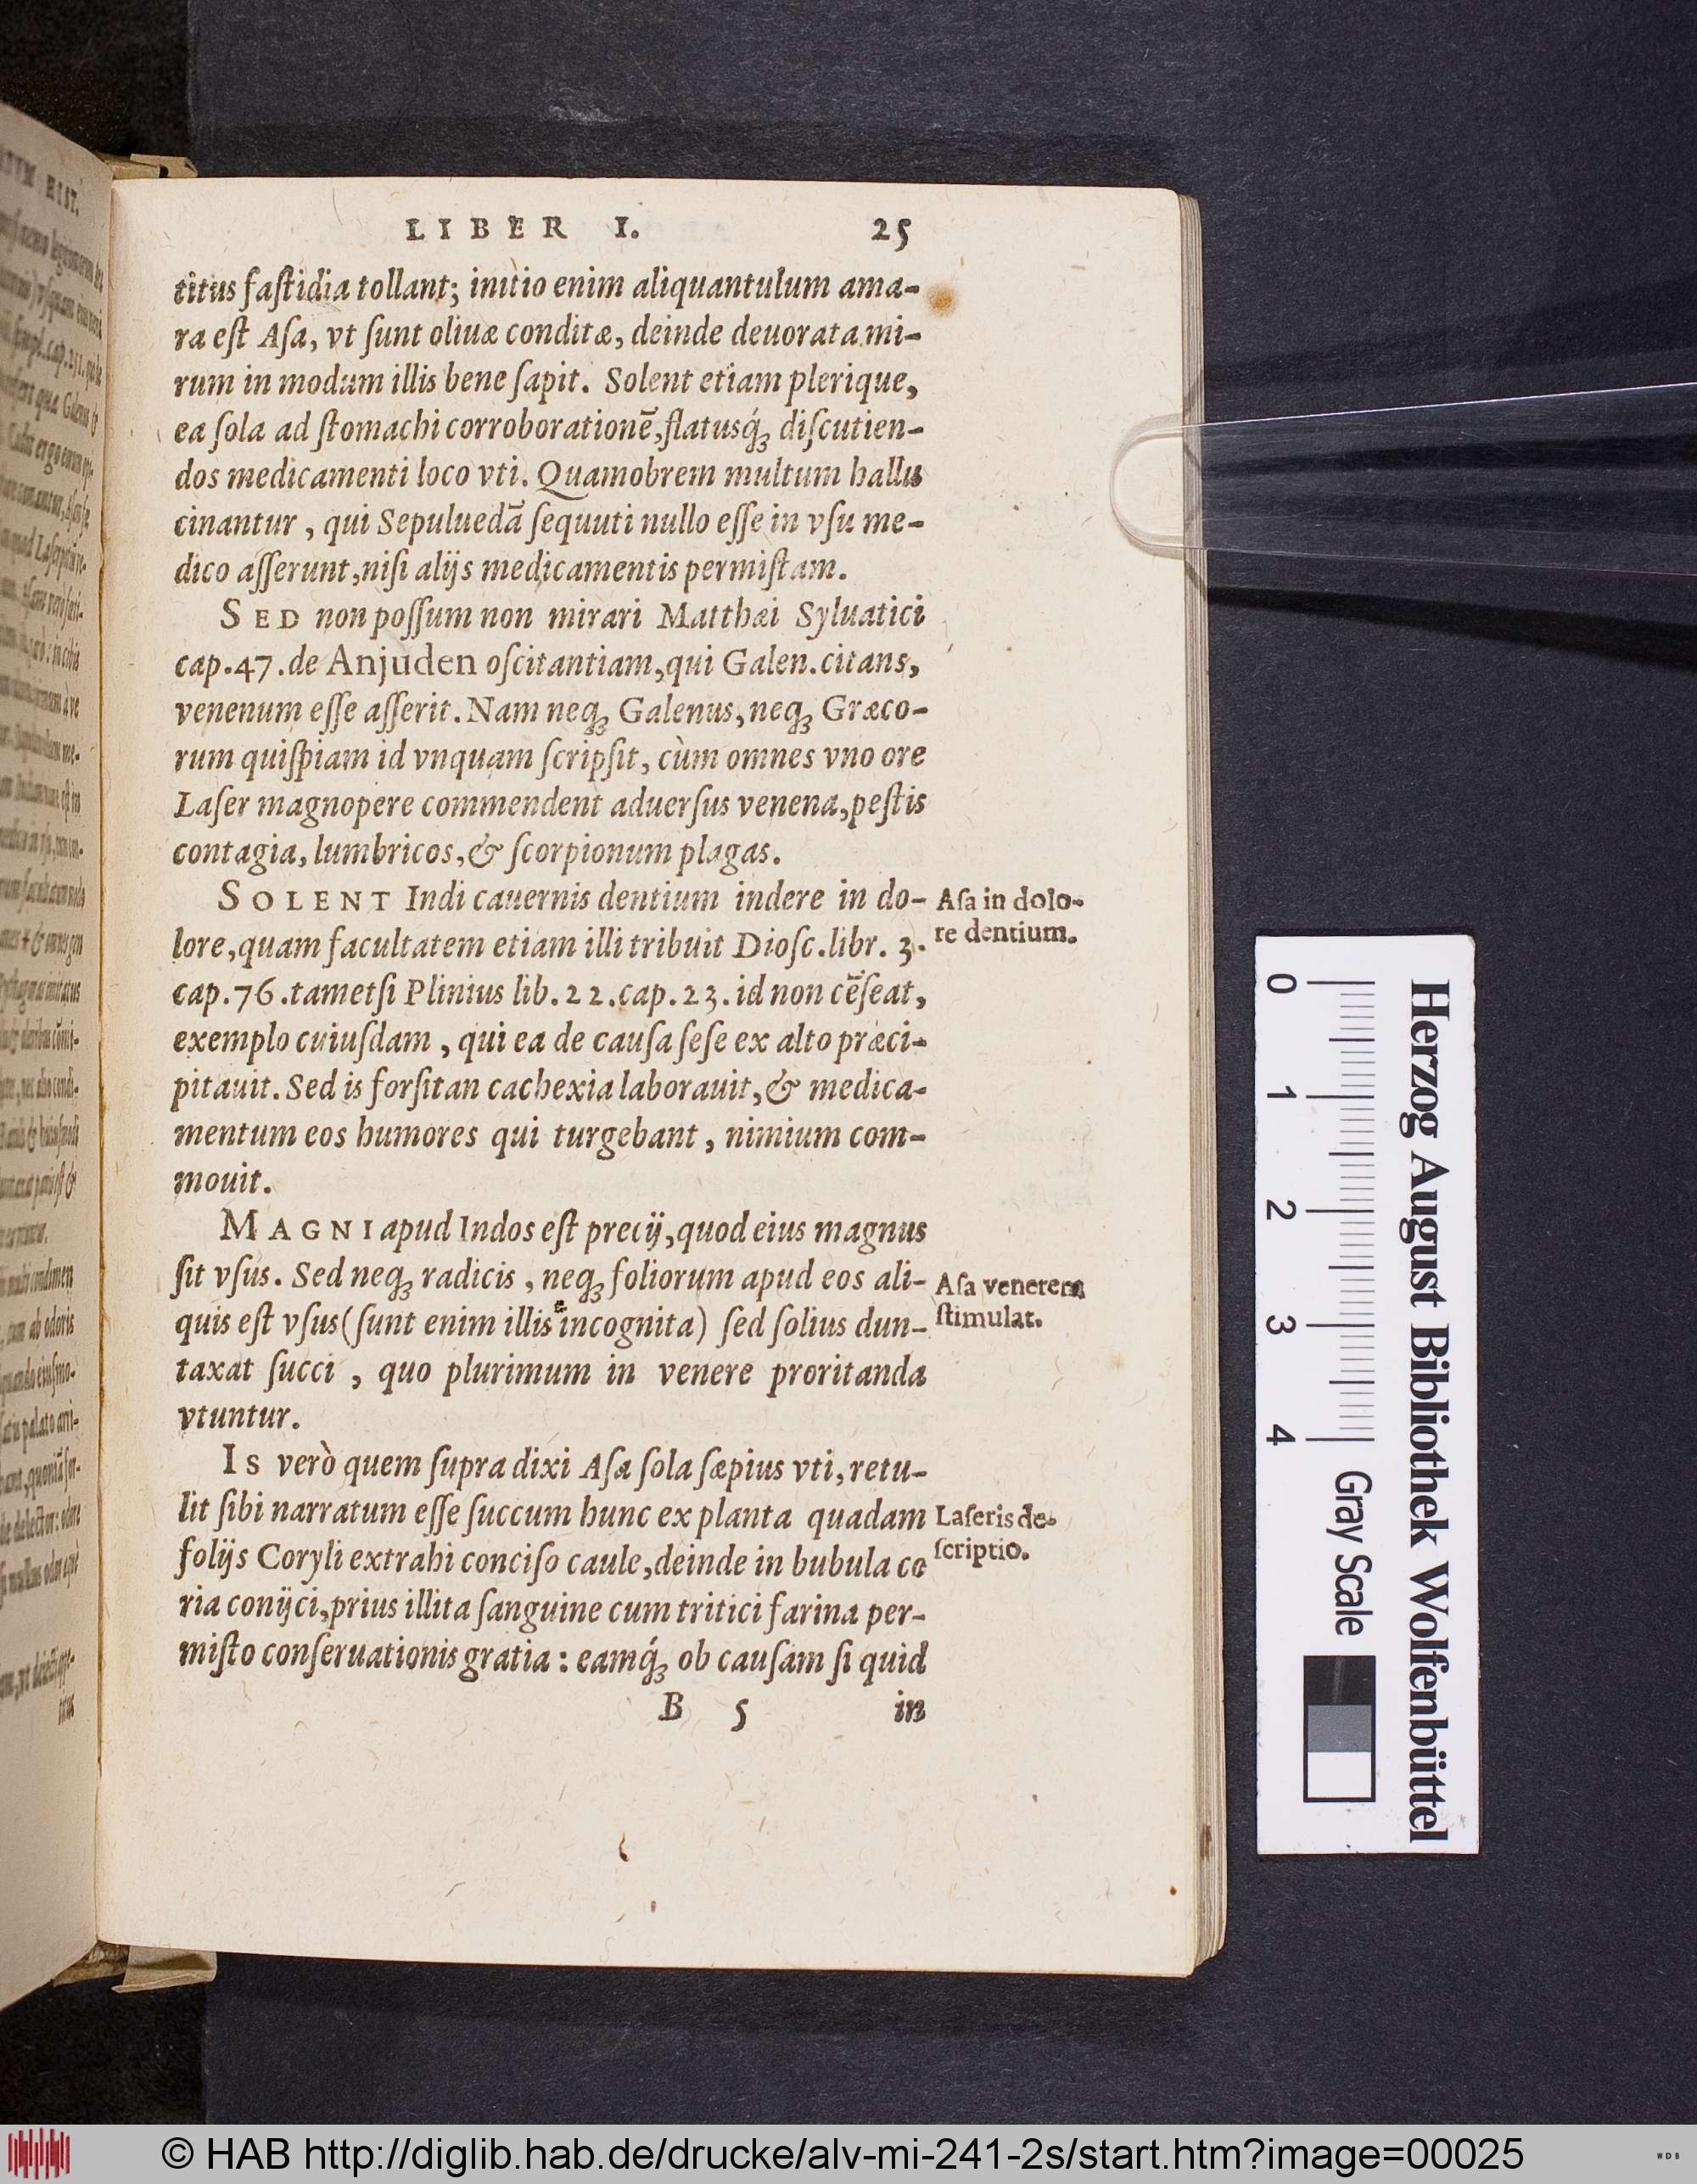 LIBER I. 25
titus faſtidia tollant; initio enim aliquantulum ama-
ra eſt Aſa, vt ſunt oliuæ conditæ, deinde deuorata mi-
rum in modum illis bene ſapit. Solent etiam plerique,
ea ſola ad ſtomachi corroborationē, flatusq́ꝫ diſcutien-
dos medicamenti loco vti. Quamobrem multum hallu
cinantur, qui Sepuluedã ſequuti nullo eſſe in vſu me-
dico aſſerunt, niſi alijs medicamentis permiſtam.
SED non poſſum non mirari Matthæi Syluatici
cap. 47. de Anjuden oſcitantiam, qui Galen. citans,
venenum eſſe aſſerit. Nam neqꝫ Galenus, neqꝫ Græco-
rum quiſpiam id vnquam ſcripſit, cùm omnes vno ore
Laſer magnopere commendent aduerſus venena, peſtis
contagia, lumbricos, & ſcorpionum plagas.
SOLENT Indi cauernis dentium indere in do-
lore, quam facultatem etiam illi tribuit Dioſc. libr. 3.
cap. 76. tametſi Plinius lib. 22. cap. 23. id non cēſeat,
exemplo cuiuſdam, qui ea de cauſa ſeſe ex alto præci-
pitauit. Sed is forſitan cachexia laborauit, & medica-
mentum eos humores qui turgebant, nimium com-
mouit.
Aſa in dolo-
re dentium.
MAGNI apud Indos eſt precij, quod eius magnus
ſit vſus. Sed neqꝫ radicis, neqꝫ foliorum apud eos ali-
quis eſt vſus (ſunt enim illis incognita) ſed ſolius dun-
taxat ſucci, quo plurimum in venere proritanda
vtuntur.
Aſa venerem
ſtimulat.
IS verò quem ſupra dixi Aſa ſola ſæpius vti, retu-
lit ſibi narratum eſſe ſuccum hunc ex planta quadam
folijs Coryli extrahi conciſo caule, deinde in bubula co
ria conijci, prius illita ſanguine cum tritici farina per-
miſto conſeruationis gratia: eamq́ꝫ ob cauſam ſi quid
Laſeris de-
ſcriptio.
B 5 in
Herzog August Bibliothek Wolfenbüttel
0 1 2 3 4 Gray Scale
© HAB http://diglib.hab.de/drucke/alv-mi-241-2s/start.htm?image=00025
WDB